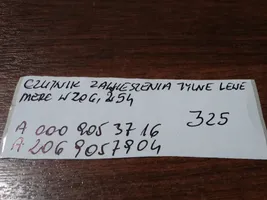 CZUJNIK ZAWIESZENIA TYLNE LEWE
MERC W206, 254
325
A 000 905 37 16
A 206 905 79 04